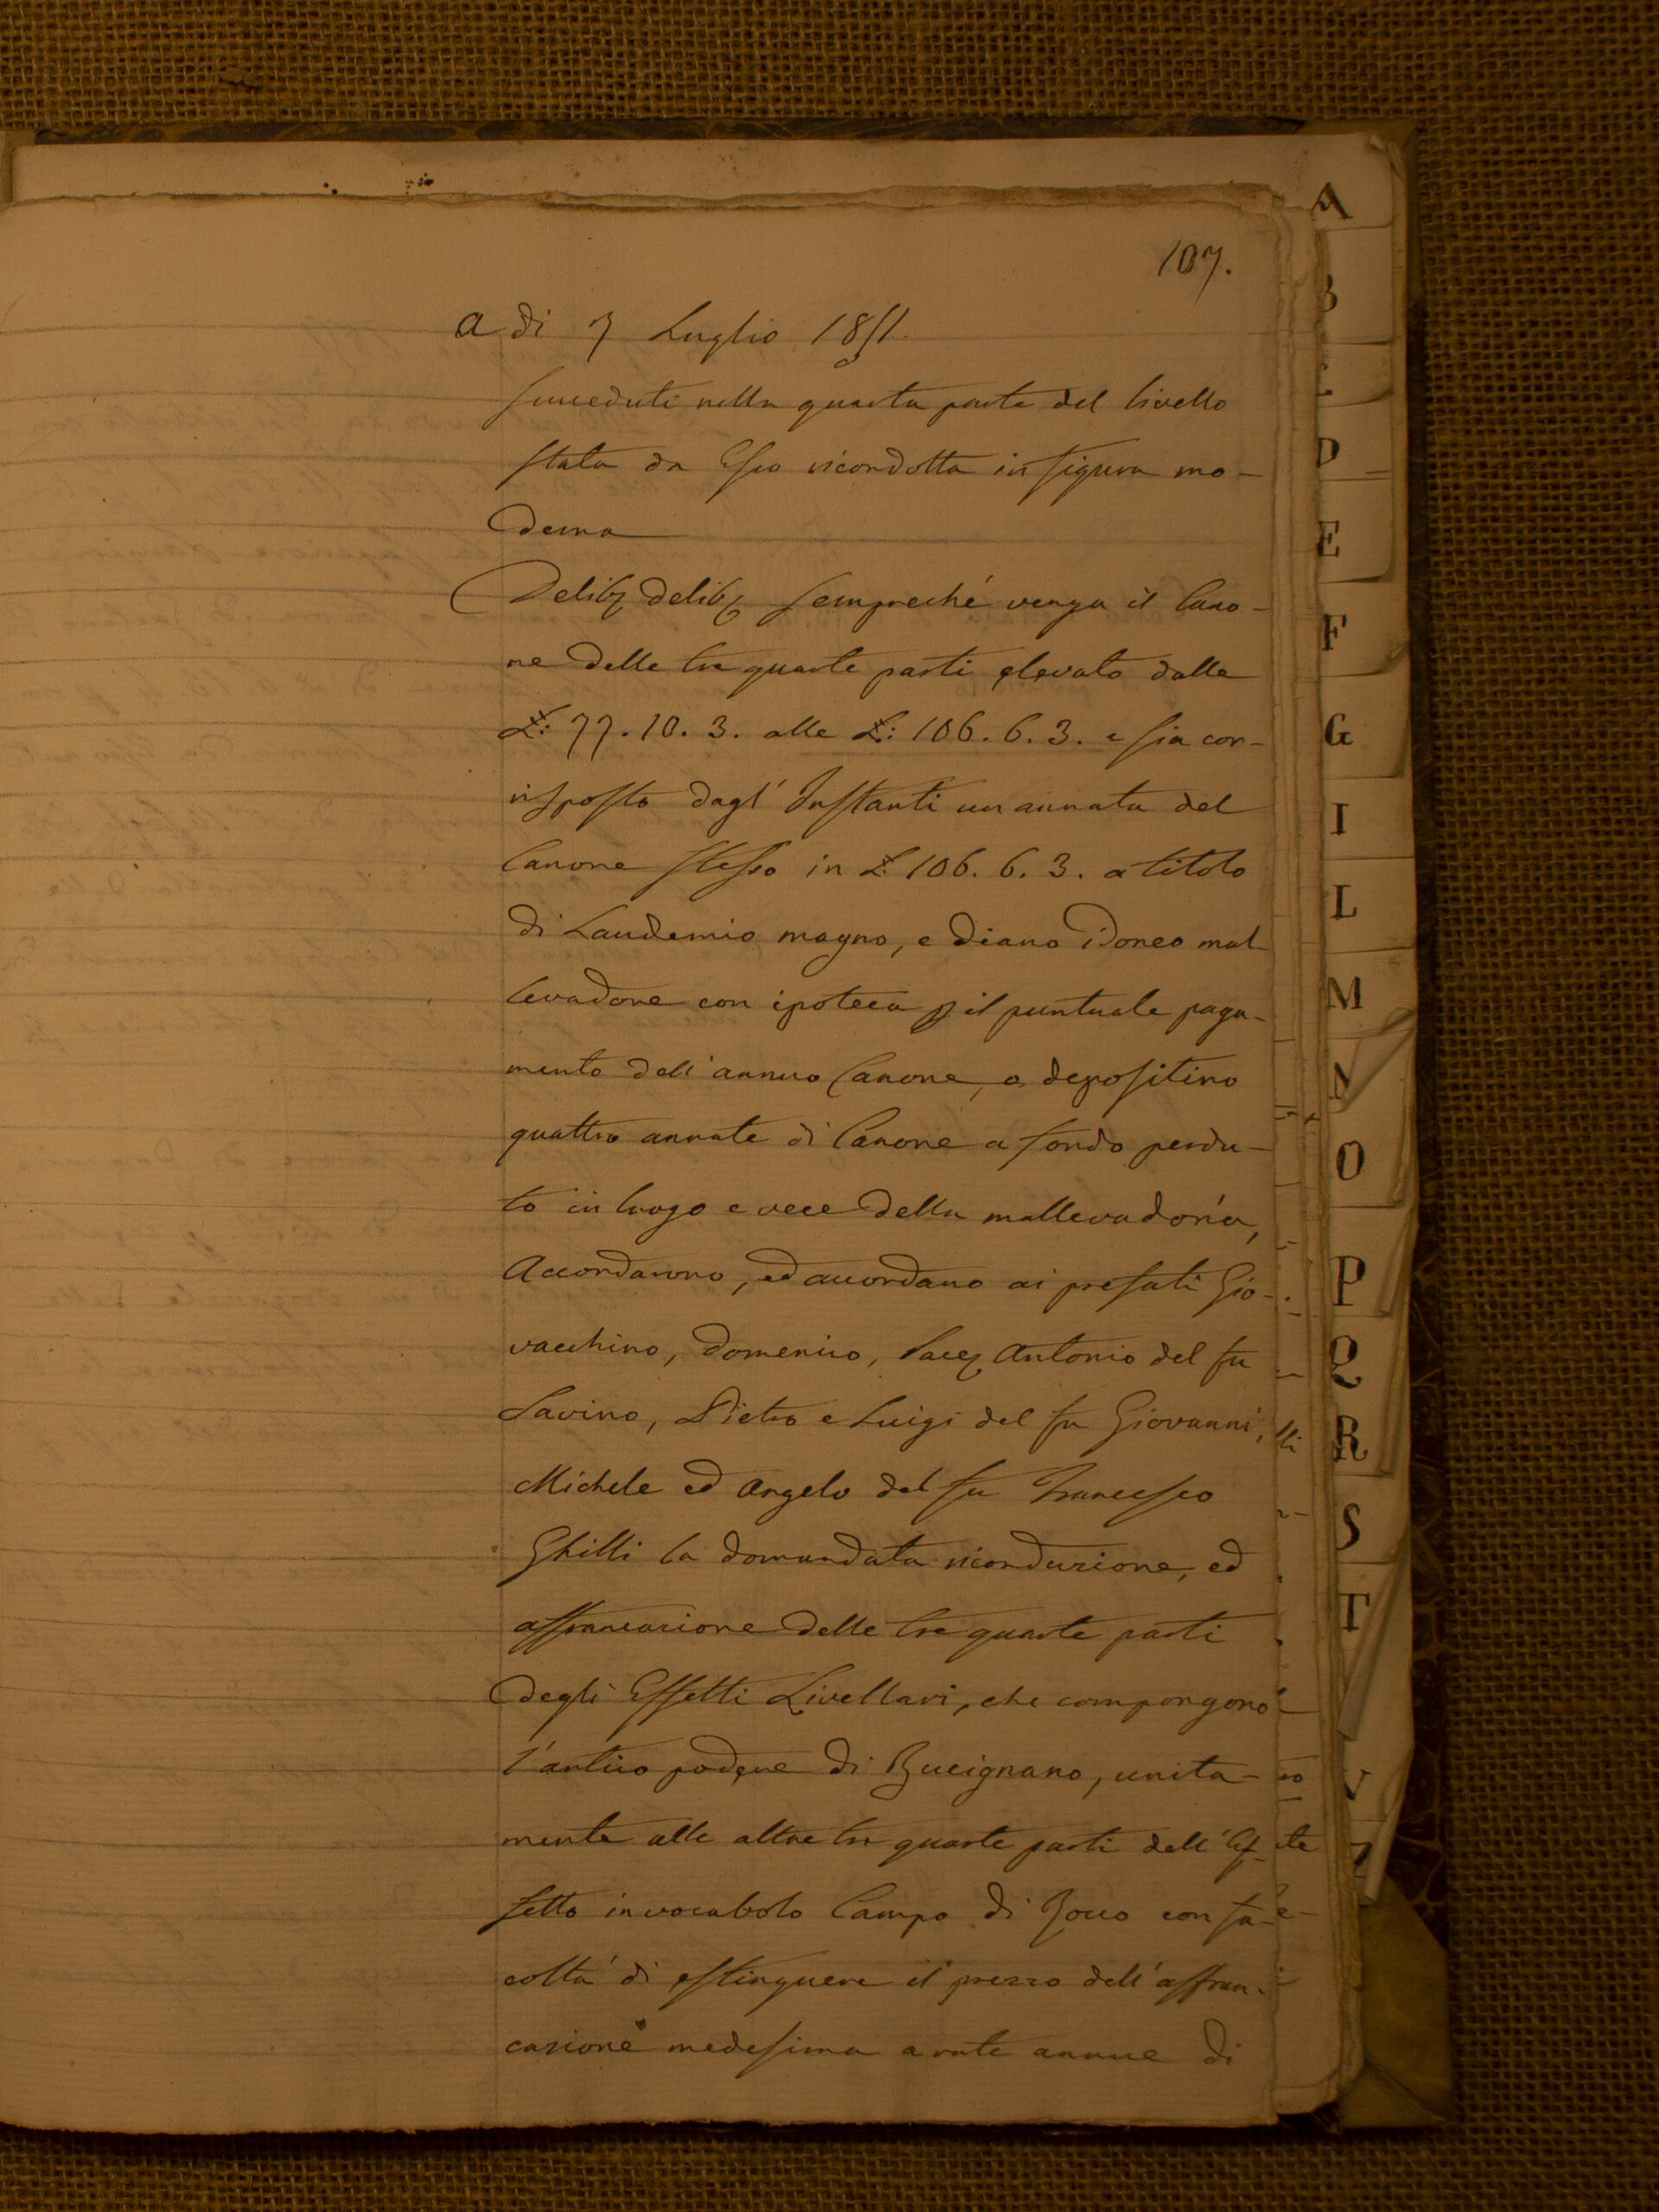 107.
a di 7 Luglio 1851.
succeduti nella quarta parte del livello
stata da Esso ricondotta in figura mo-
derna
Delib. delib. sempreché venga il Cano-
ne delle tre quarte parti elevato dalle
£: 77. 10. 3. alle £: 106. 6. 3. e sia cor-
risposto dagl' Instanti un annata del
Canone stesso in £ 106. 6. 3. a titolo
di Laudemio magno, e diano idoneo mal
levadore con ipoteca p il puntuale paga-
mento dell'annuo Canone, o depositino
quattro annate di Canone a fondo perdu-
to in luogo e vece della mallevadoria,
Accordarono, ed accordano ai prefati Gio-
vacchino, Domenico, Antonio del fu
Savino, Pietro e Luigi del fu Giovanni,
Michele ed Angelo del fu Francesco
Ghilli la domandata riconduzione, ed
affrancazione delle tre quarte parti
degli Effetti Livellari, che compongono
l'antico podere di Bucignano, unita-
mente alle altre tre quarte parti dell' Ef-
fetto in vocabolo Campo di con fa-
coltà di estinguere il prezzo dell'affran-
cazione medesima a rate annue di
A
B
C
D
E
F
G
I
L
M
N
O
P
Q
R
S
T
V
Z